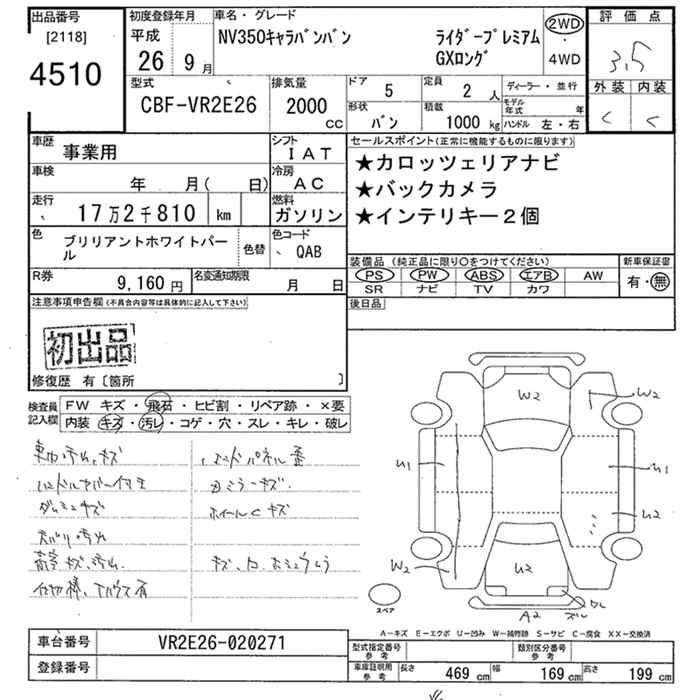 出品番号
[2118]
4510
初度登録年月
平成
26年 9月
車名・グレード
NV350キャラバンバン
ライダープレミアム
GXロング
2WD
・
4WD
評価点
3,5
外装 内装
C C
型式
CBF-VR2E26
排気量
2000
CC
ドア
5
定員
2 人
形状
バン
積載
1000 kg
ディーラー・並行
モデル年式 年
ハンドル 左・右
車歴
事業用
シフト
IAT
車検
年 月( 日)
冷房
AC
走行
17万2千810 km
燃料
ガソリン
色
ブリリアントホワイトパール
色替
色コード
QAB
R券
9,160 円
名変通知期限
月 日
セールスポイント(正常に機能するものに限ります)
★カロッツェリアナビ
★バックカメラ
★インテリキー2個
装備品 (純正品に限り〇をつけてください)
PS PW ABS エアB AW
SR ナビ TV カワ
新車保証書
有・無
後日品
注意事項申告欄(不具合内容等は具体的に記入して下さい)
初出品
修復歴 有〔箇所 〕
検査員記入欄
FW キズ・飛石・ヒビ割・リペア跡・×要
内装・キズ・汚レ・コゲ・穴・スレ・キレ・破レ
ダッシュキズ
天バリ汚レ
ホイールCキズ
W2
W2
U1
U1
U2
W2
U2
A2
スペア
A―キズ E―エクボ U―凹み W―補修跡 S―サビ C―腐食 XX―交換済
車台番号
VR2E26-020271
登録番号
型式指定番号
参考
類別区分番号
参考
車庫証明用
参考
長さ 469 cm
幅 169 cm
高さ 199 cm